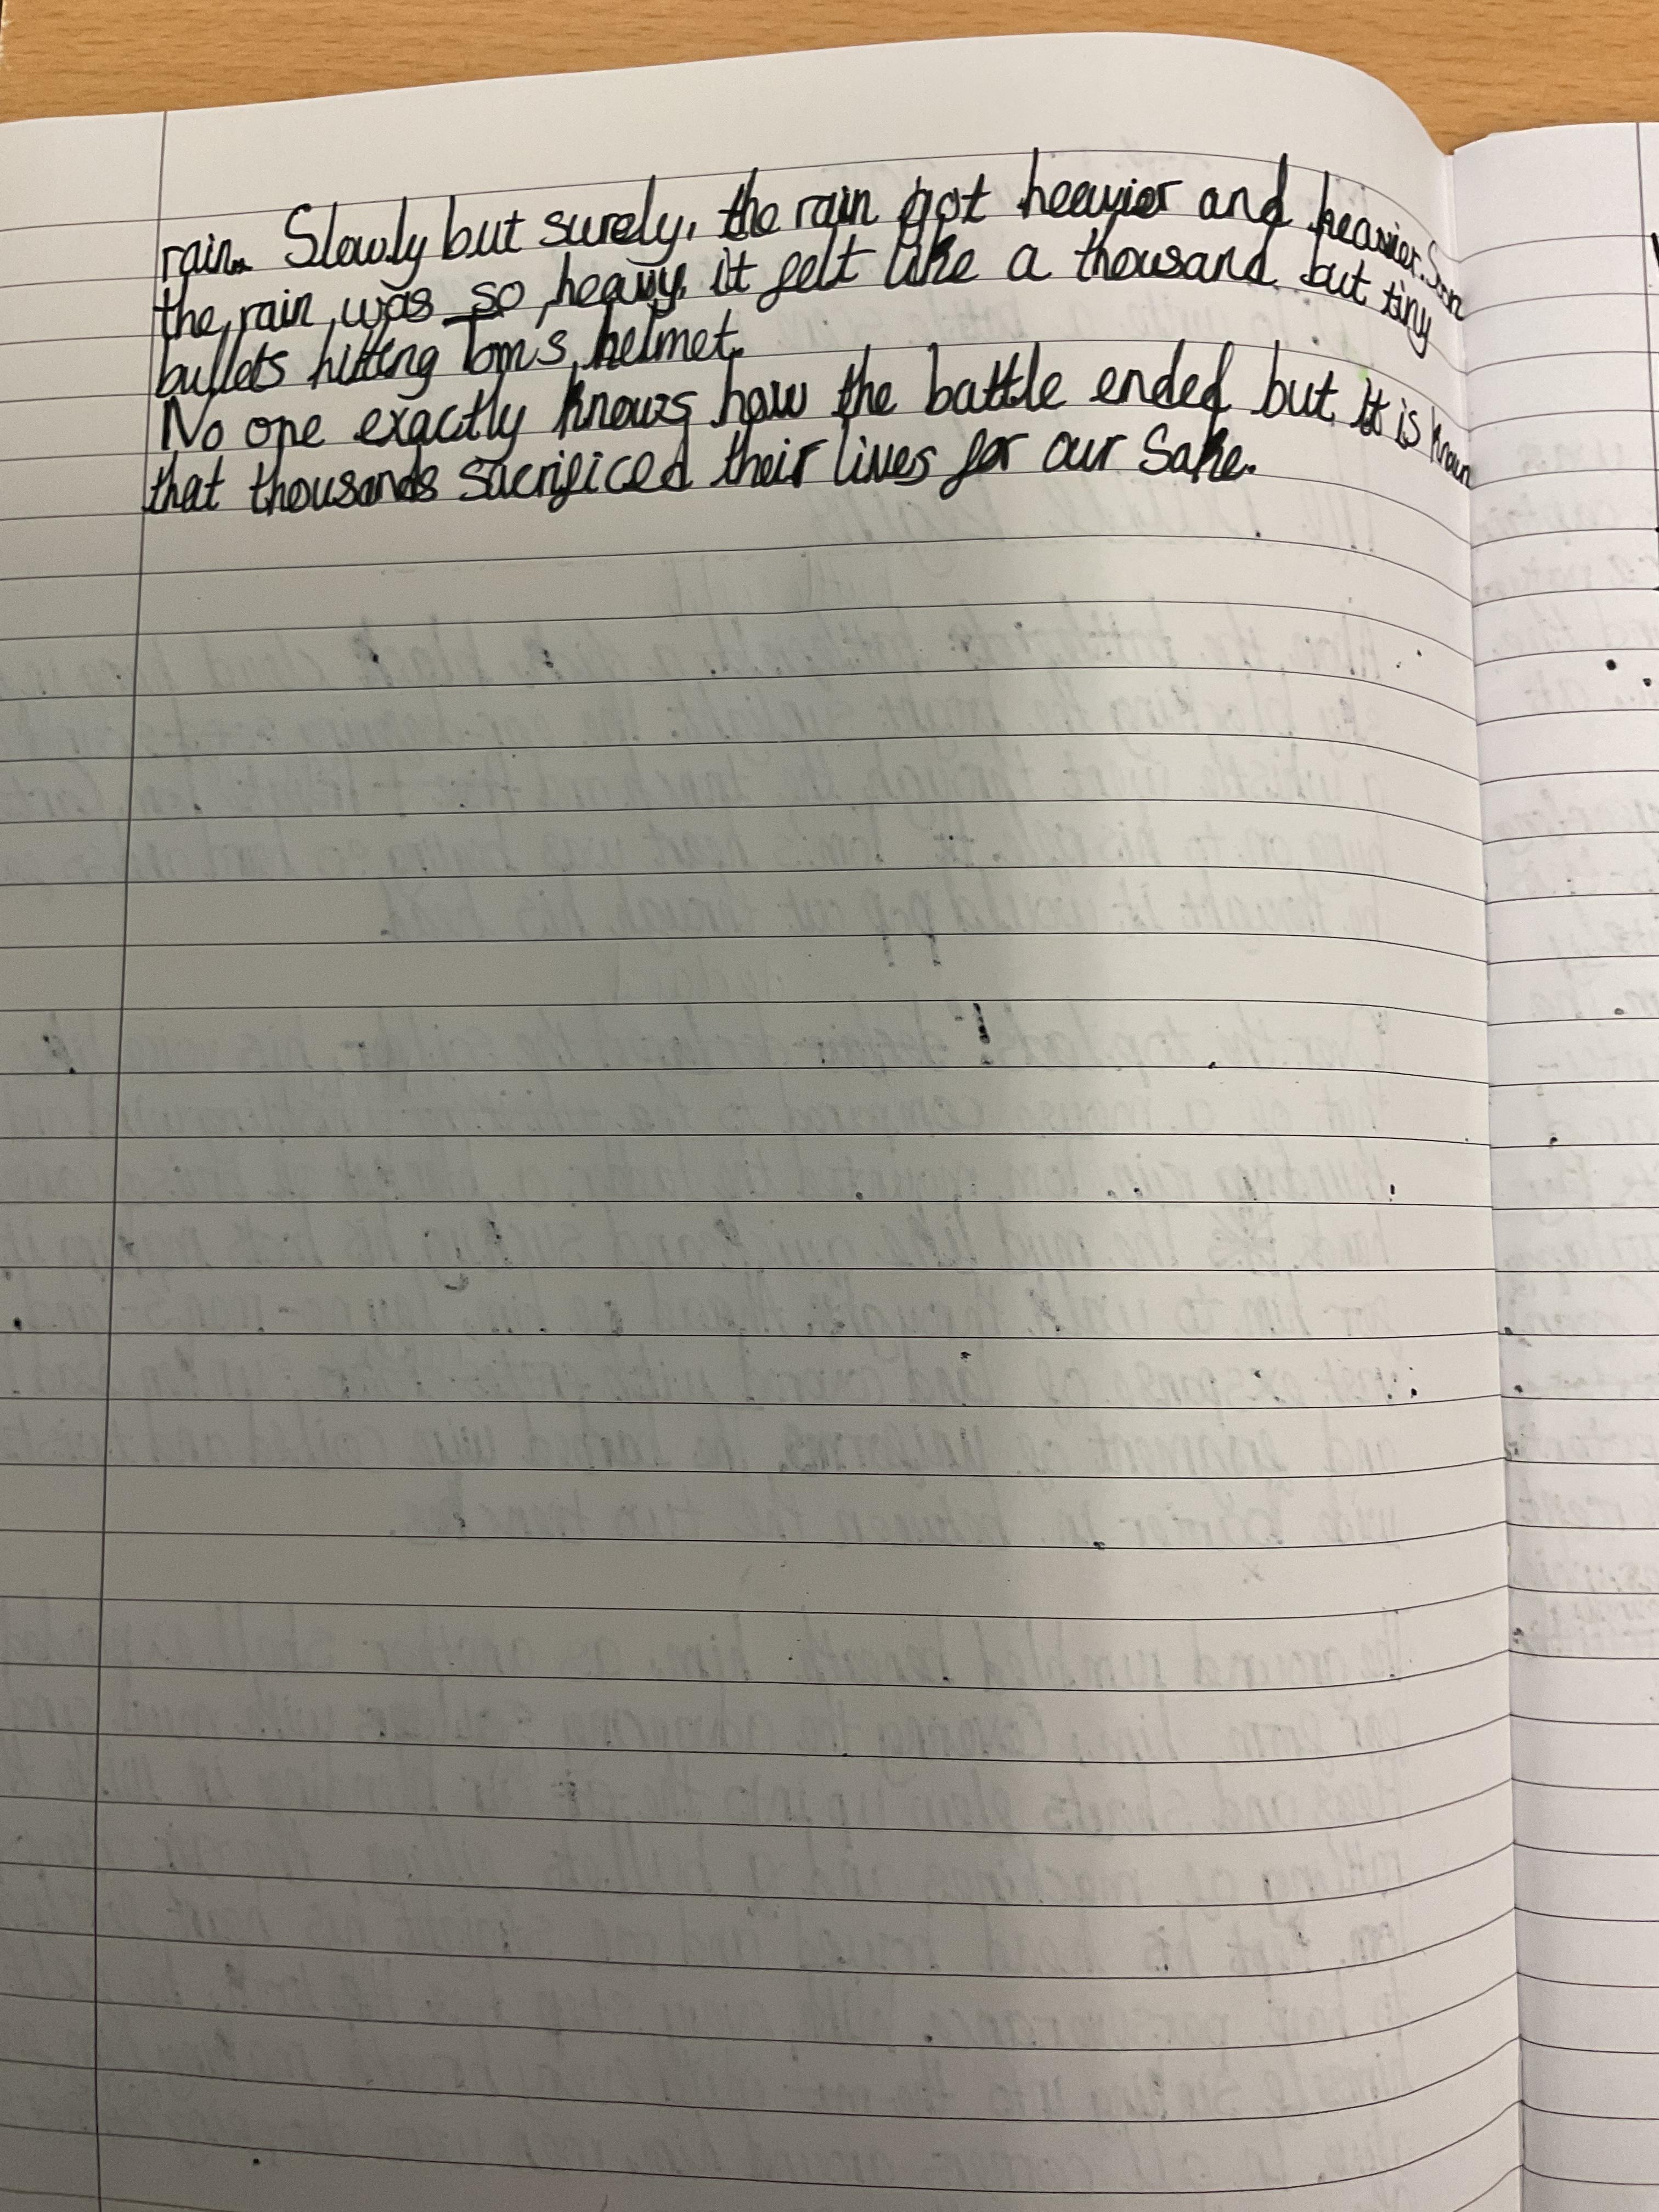 rain. Slowly but surely, the rain got heavier and heavier. Soon
the rain was so heavy, it felt like a thousand but tiny
bullets hitting Tom's helmet.
No one exactly knows how the battle ended but it is known
that thousands sacrificed their lives for our sake.